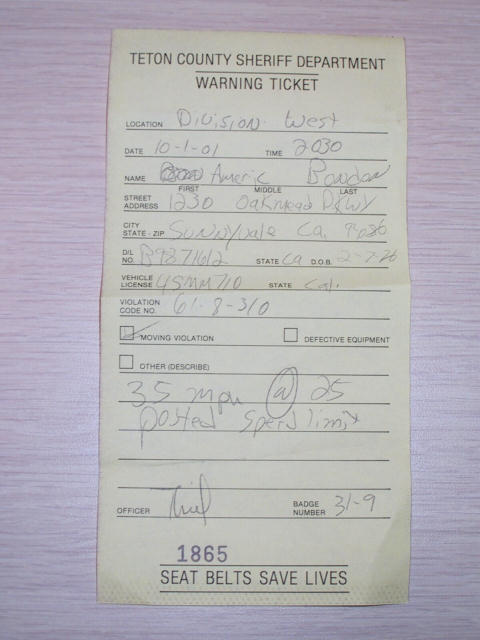 TETON COUNTY SHERIFF DEPARTMENT
WARNING TICKET
LOCATION Division West
DATE 10-1-01 TIME 2030
NAME Americ Bondon
FIRST MIDDLE LAST
STREET ADDRESS 1230 Oakmead PKWY
CITY STATE - ZIP Sunnyvale Ca.
D/L NO. B9871612 STATE Ca D.O.B. 2-7-76
VEHICLE LICENSE 4SMM710 STATE Cal.
VIOLATION CODE NO. 61-8-310
MOVING VIOLATION DEFECTIVE EQUIPMENT
OTHER (DESCRIBE)
35 mph @ 25
posted Speed limit
OFFICER BADGE NUMBER 31-9
1865
SEAT BELTS SAVE LIVES